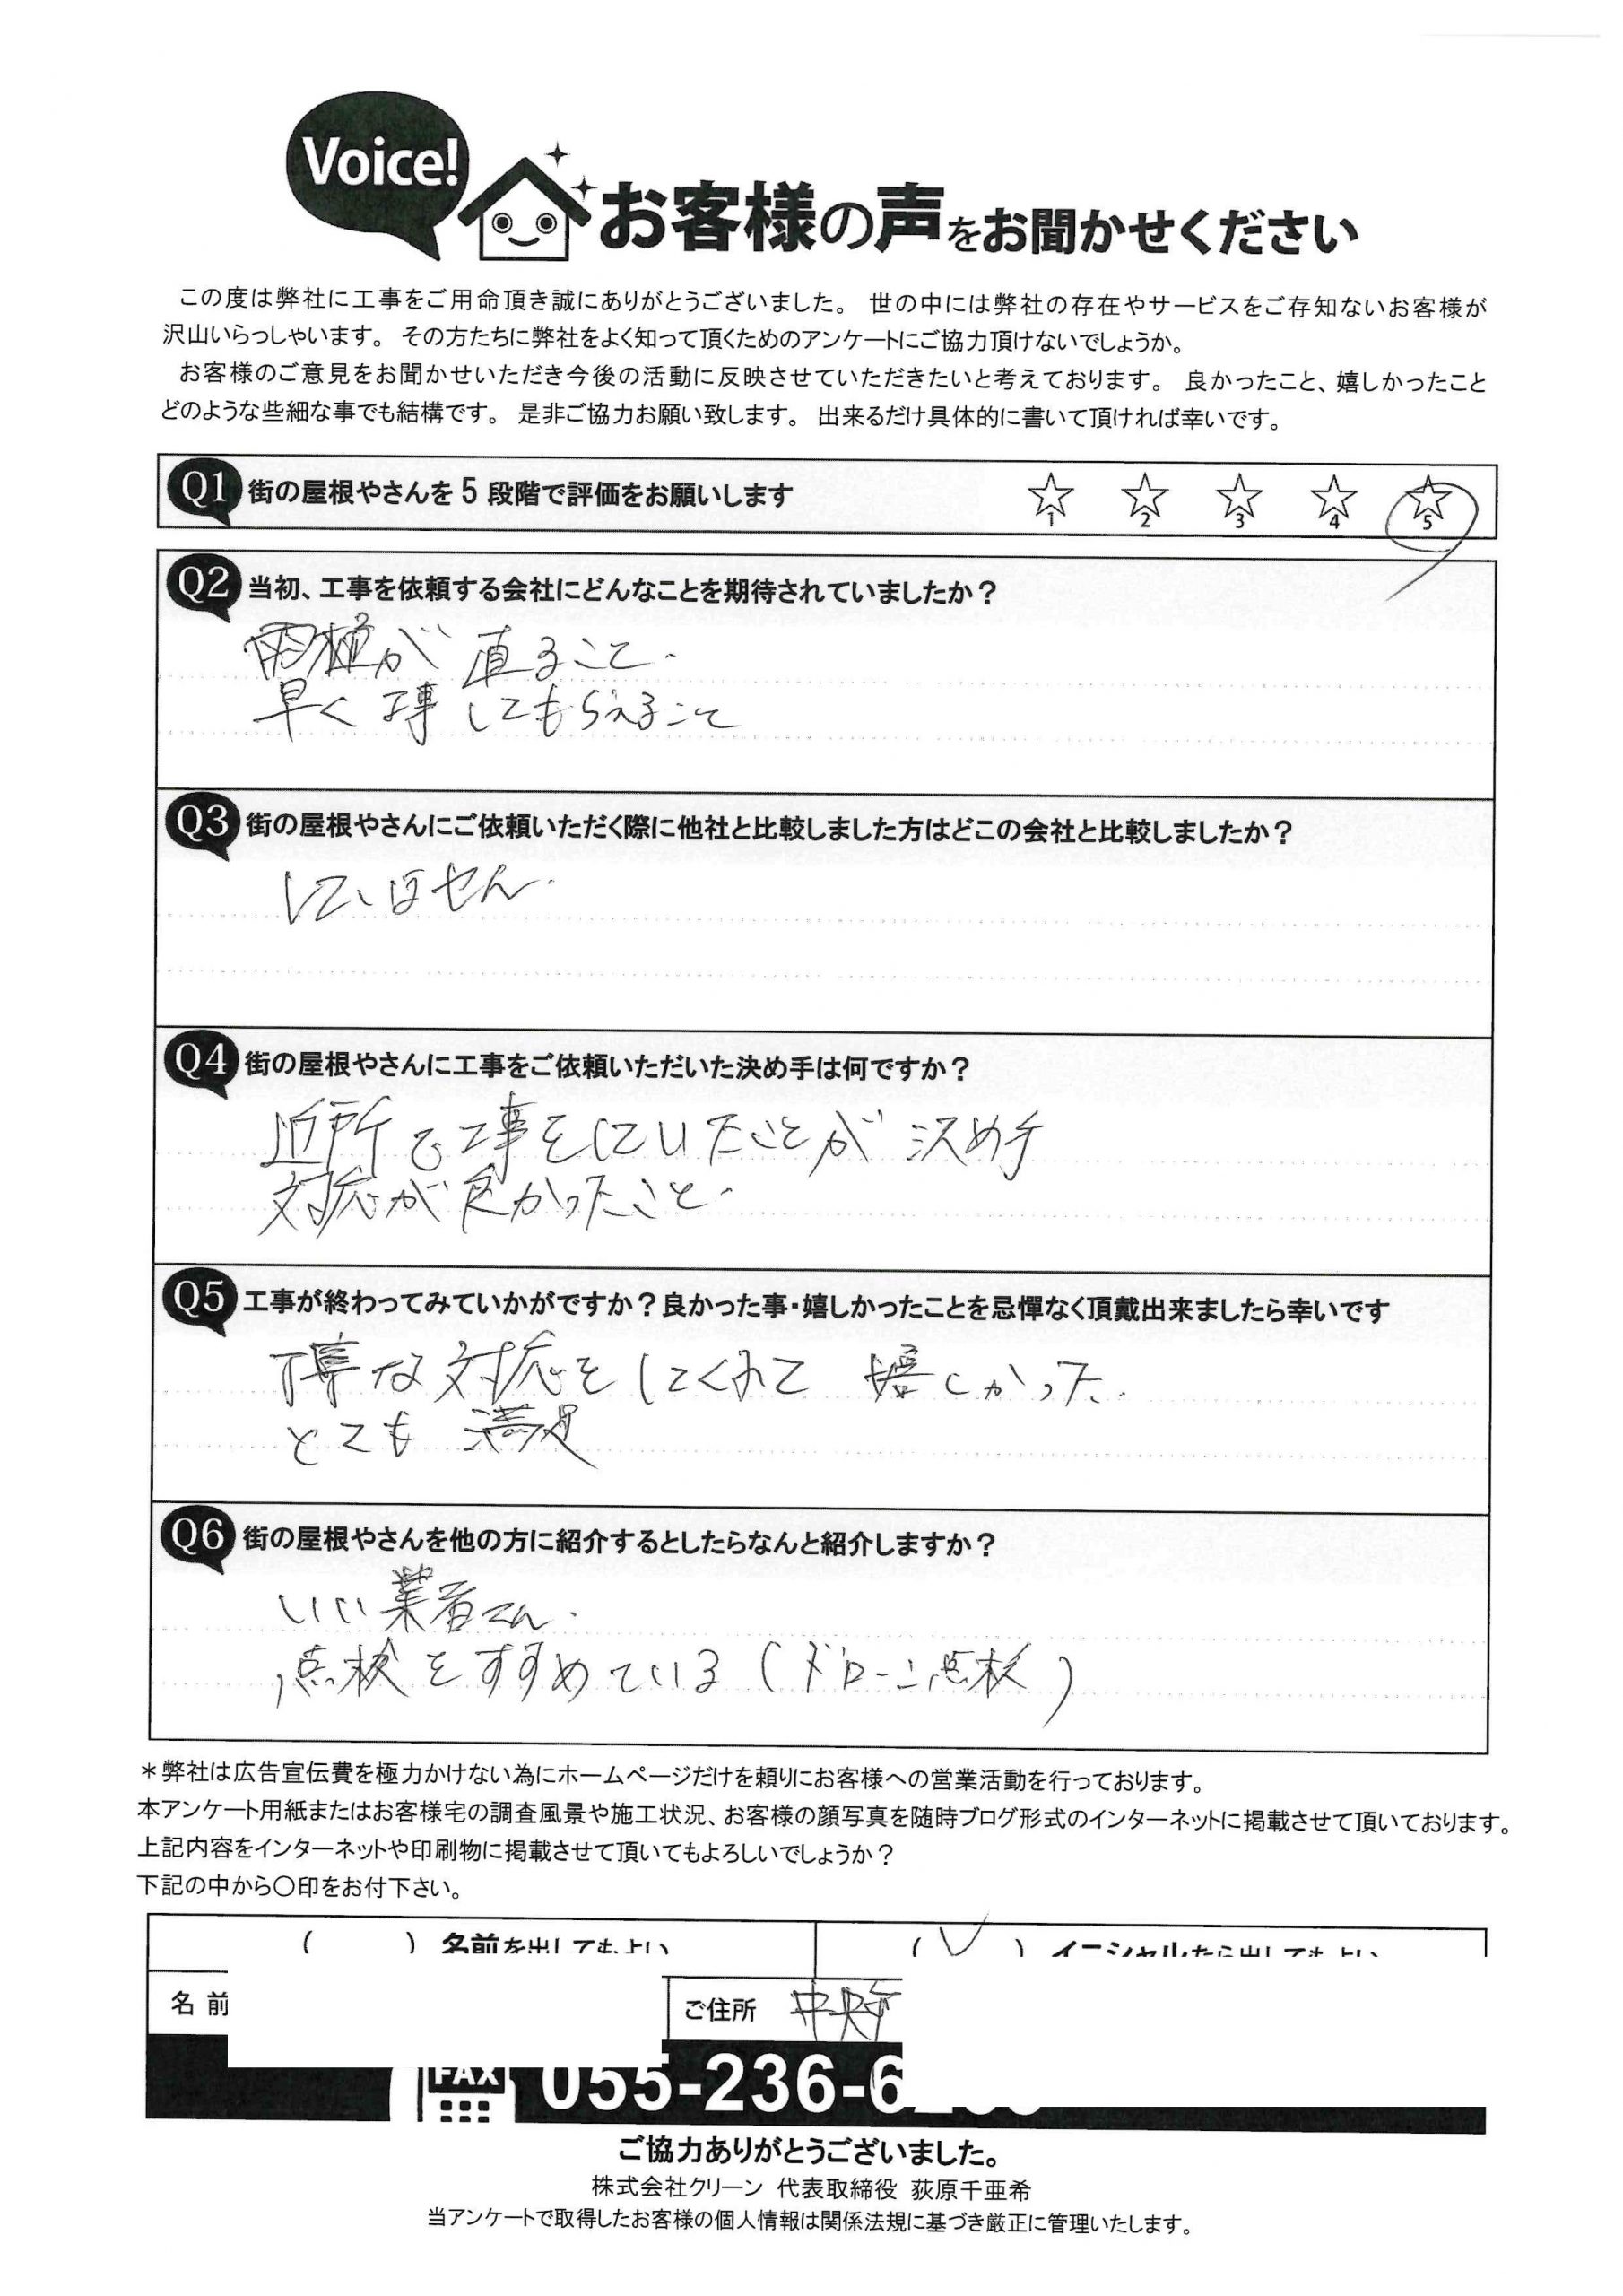 Voice!
お客様の声をお聞かせください
この度は弊社に工事をご用命頂き誠にありがとうございました。 世の中には弊社の存在やサービスをご存知ないお客様が
沢山いらっしゃいます。 その方たちに弊社をよく知って頂くためのアンケートにご協力頂けないでしょうか。
お客様のご意見をお聞かせいただき今後の活動に反映させていただきたいと考えております。 良かったこと、嬉しかったこと
どのような些細な事でも結構です。 是非ご協力お願い致します。 出来るだけ具体的に書いて頂ければ幸いです。
Q1 街の屋根やさんを5段階で評価をお願いします 1 2 3 4 5
Q2 当初、工事を依頼する会社にどんなことを期待されていましたか？
雨樋が 直ること.
早く工事してもらえること
Q3 街の屋根やさんにご依頼いただく際に他社と比較しました方はどこの会社と比較しましたか？
していません.
Q4 街の屋根やさんに工事をご依頼いただいた決め手は何ですか？
近所で工事をしていたことが 決め手
対応が良かったこと.
Q5 工事が終わってみていかがですか？良かった事・嬉しかったことを忌憚なく頂戴出来ましたら幸いです
丁寧な対応をしてくれて 嬉しかった.
とても 満足
Q6 街の屋根やさんを他の方に紹介するとしたらなんと紹介しますか？
いい業者さん.
点検をすすめている（ドローン点検）
＊弊社は広告宣伝費を極力かけない為にホームページだけを頼りにお客様への営業活動を行っております。
本アンケート用紙またはお客様宅の調査風景や施工状況、お客様の顔写真を随時ブログ形式のインターネットに掲載させて頂いております。
上記内容をインターネットや印刷物に掲載させて頂いてもよろしいでしょうか？
下記の中から〇印をお付下さい。
（ ）名前を出してもよい （✓）イニシャルなら出してもよい
名前 ご住所 中央市
FAX 055-236-6
ご協力ありがとうございました。
株式会社クリーン 代表取締役 荻原千亜希
当アンケートで取得したお客様の個人情報は関係法規に基づき厳正に管理いたします。